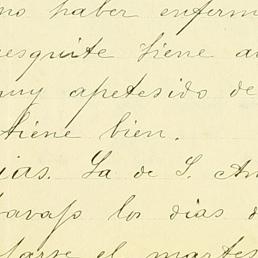 no haber enferm
esquite tiene a
muy apetesido de
tiene bien.
ias. La de S. An
avajo los dias d
farse el martes